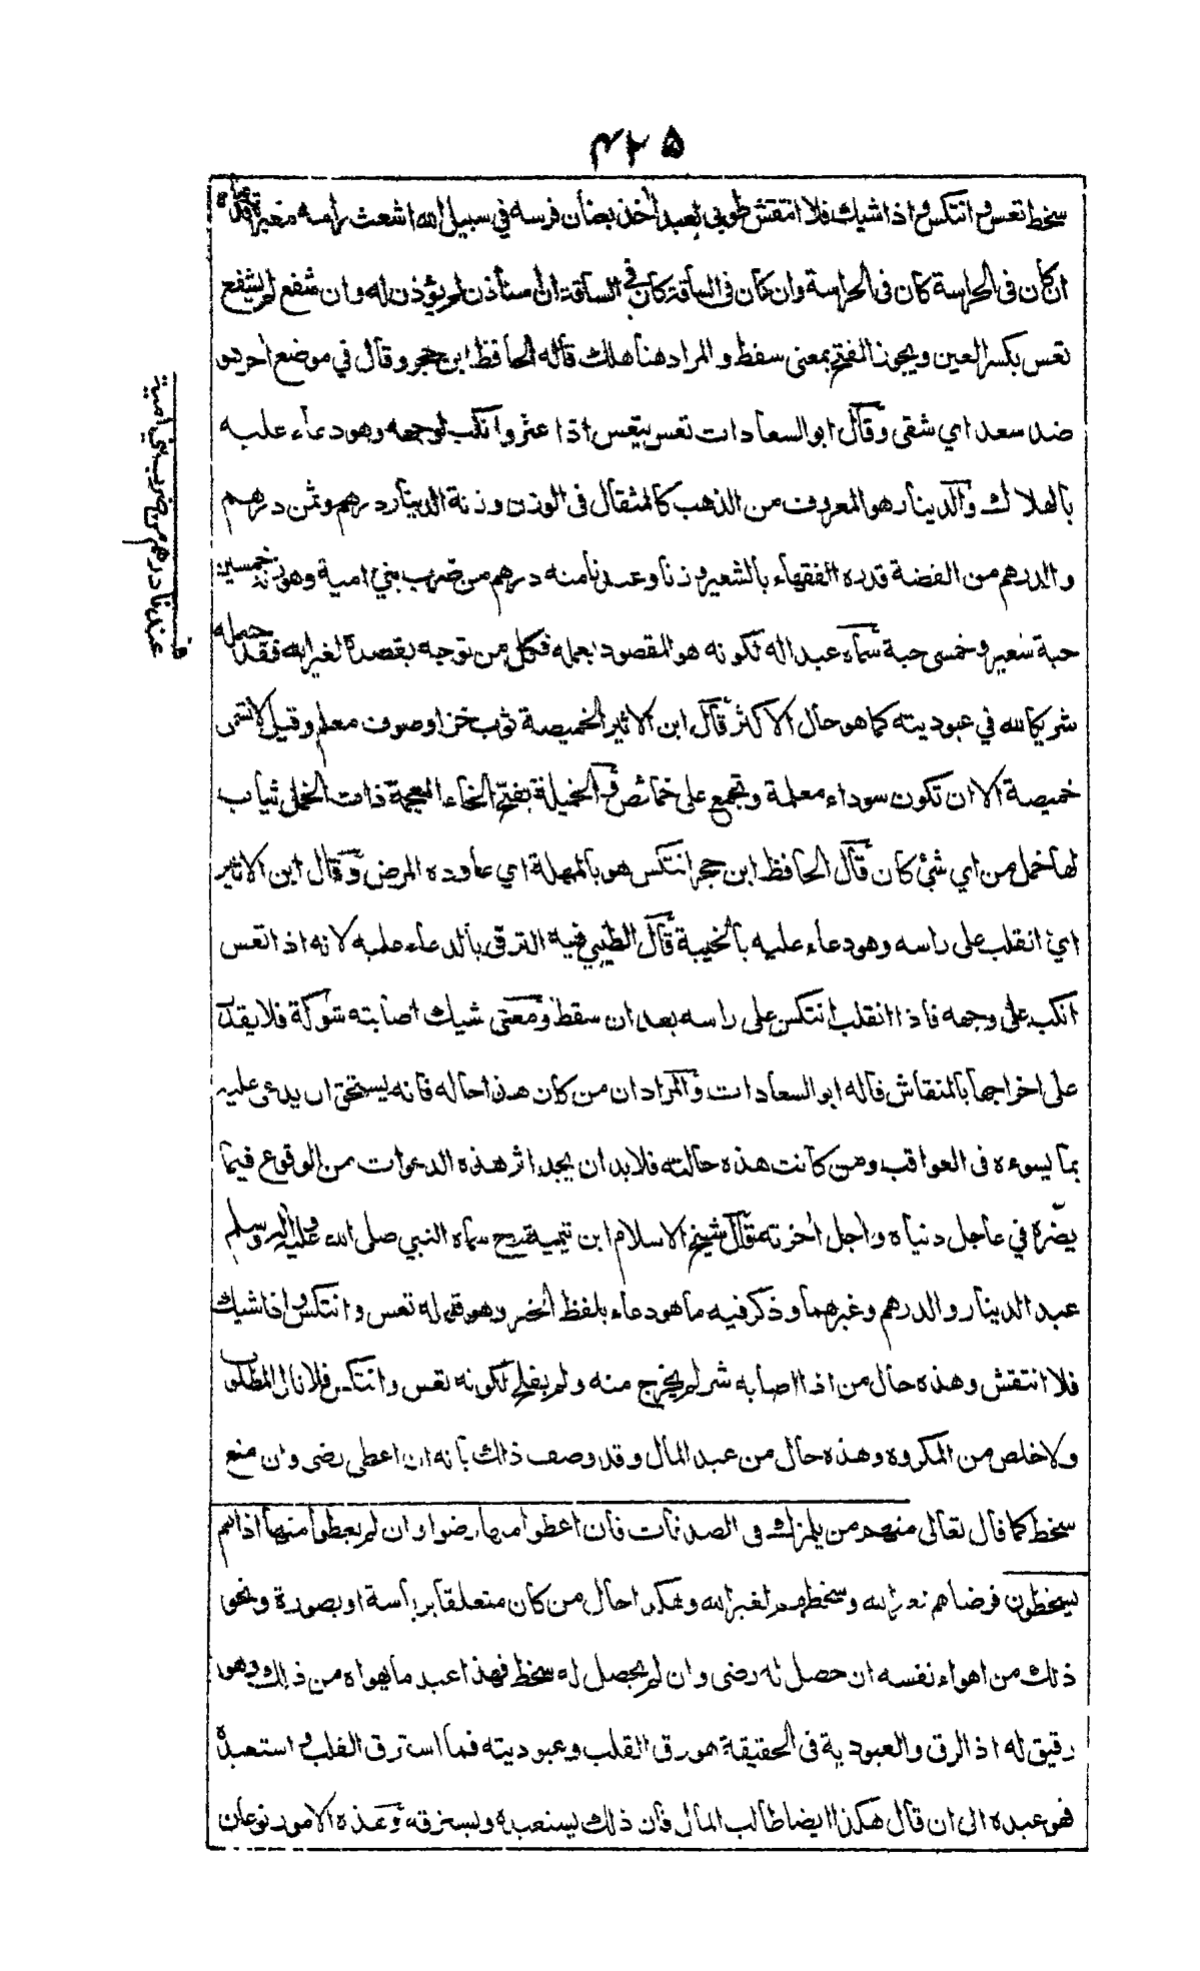 ۴۲۵
سخط تعس وانتكس واذا شيك فلا انتقش طوبى لعبد اخذ بعنان فرسه في سبيل الله اشعث راسه مغبرة قدماه
ان كان فى الحراسة كان فى الحراسة وان كان فى الساقة كان فى الساقة ان استأذن لم يؤذن له وان شفع لم يشفع
تعس بكسر العين ويجوز الفتح بمعنى سقط والمراد هنا هلك قاله الحافظ ابن حجر وقال في موضع اخر هو
ضد سعد اي شقى وقال ابو السعادات تعس يتعس اذا عثر وانكب لوجهه وهو دعاء عليه
بالهلاك والدينار هو المعروف من الذهب كالمثقال فى الوزن وزنة الدينار درهم وثمن درهم
والدرهم من الفضة قدره الفقهاء بالشعير وزنا وعندنا منه درهم من ضرب بني امية وهو زنة خمسين
حبة شعير وخمسى حبة سماه عبدا له لكونه هو المقصود بعمله فكل من توجه بقصده لغير الله فقد جعله
شريكا لله في عبوديته كما هو حال الاكثر قال ابن الاثير الخميصة ثوب خز او صوف معلم وقيل لا تسمى
خميصة الا ان تكون سوداء معلمة وتجمع على خمائص والخميلة بفتح الخاء المعجمة ذات الخمل ثياب
لها خمل من اي شئ كان قال الحافظ ابن حجر انتكس هو بالمهملة اي عاوده المرض وقال ابن الاثير
اي انقلب على راسه وهو دعاء عليه بالخيبة قال الطيبي فيه الترقى بالدعاء عليه لانه اذا تعس
انكب على وجهه فاذا انقلب انتكس على راسه بعد ان سقط ومعنى شيك اصابته شوكة فلا يقدر
على اخراجها بالمنقاش قاله ابو السعادات والمراد ان من كان هذا حاله فانه يستحق ان يدعى عليه
بما يسوءه فى العواقب ومن كانت هذه حالته فلا بد ان يجد اثر هذه الدعوات من الوقوع فيما
يضره في عاجل دنياه واجل اخرته قال شيخ الاسلام ابن تيمية رح سماه النبي صلى الله عليه واله وسلم
عبد الدينار والدرهم وغيرهما وذكر فيه ما هو دعاء بلفظ الخبر وهو قوله تعس وانتكس واذا شيك
فلا انتقش وهذه حال من اذا اصابه شر لم يخرج منه ولم يفلح لكونه تعس وانتكس فلا نال المطلوب
ولا خلص من المكروه وهذه حال من عبد المال وقد وصف ذلك بانه ان اعطى رضى وان منع
سخط كما قال تعالى منهم من يلمزك فى الصدقات فان اعطوا منها رضوا وان لم يعطوا منها اذا هم
يسخطون فرضاهم لغير الله وسخطهم لغير الله وهكذا حال من كان متعلقا برياسة او بصورة ونحو
ذلك من اهواء نفسه ان حصل له رضى وان لم يحصل له سخط فهذا عبد ما يهواه من ذلك وهو
رقيق له اذ الرق والعبودية فى الحقيقة هو رق القلب وعبوديته فما استرق القلب واستعبده
فهو عبده الى ان قال هكذا ايضا طالب المال فان ذلك يستعبده ويسترقه وهذه الامور نوعان
عندنا درهم من ضرب بني امية